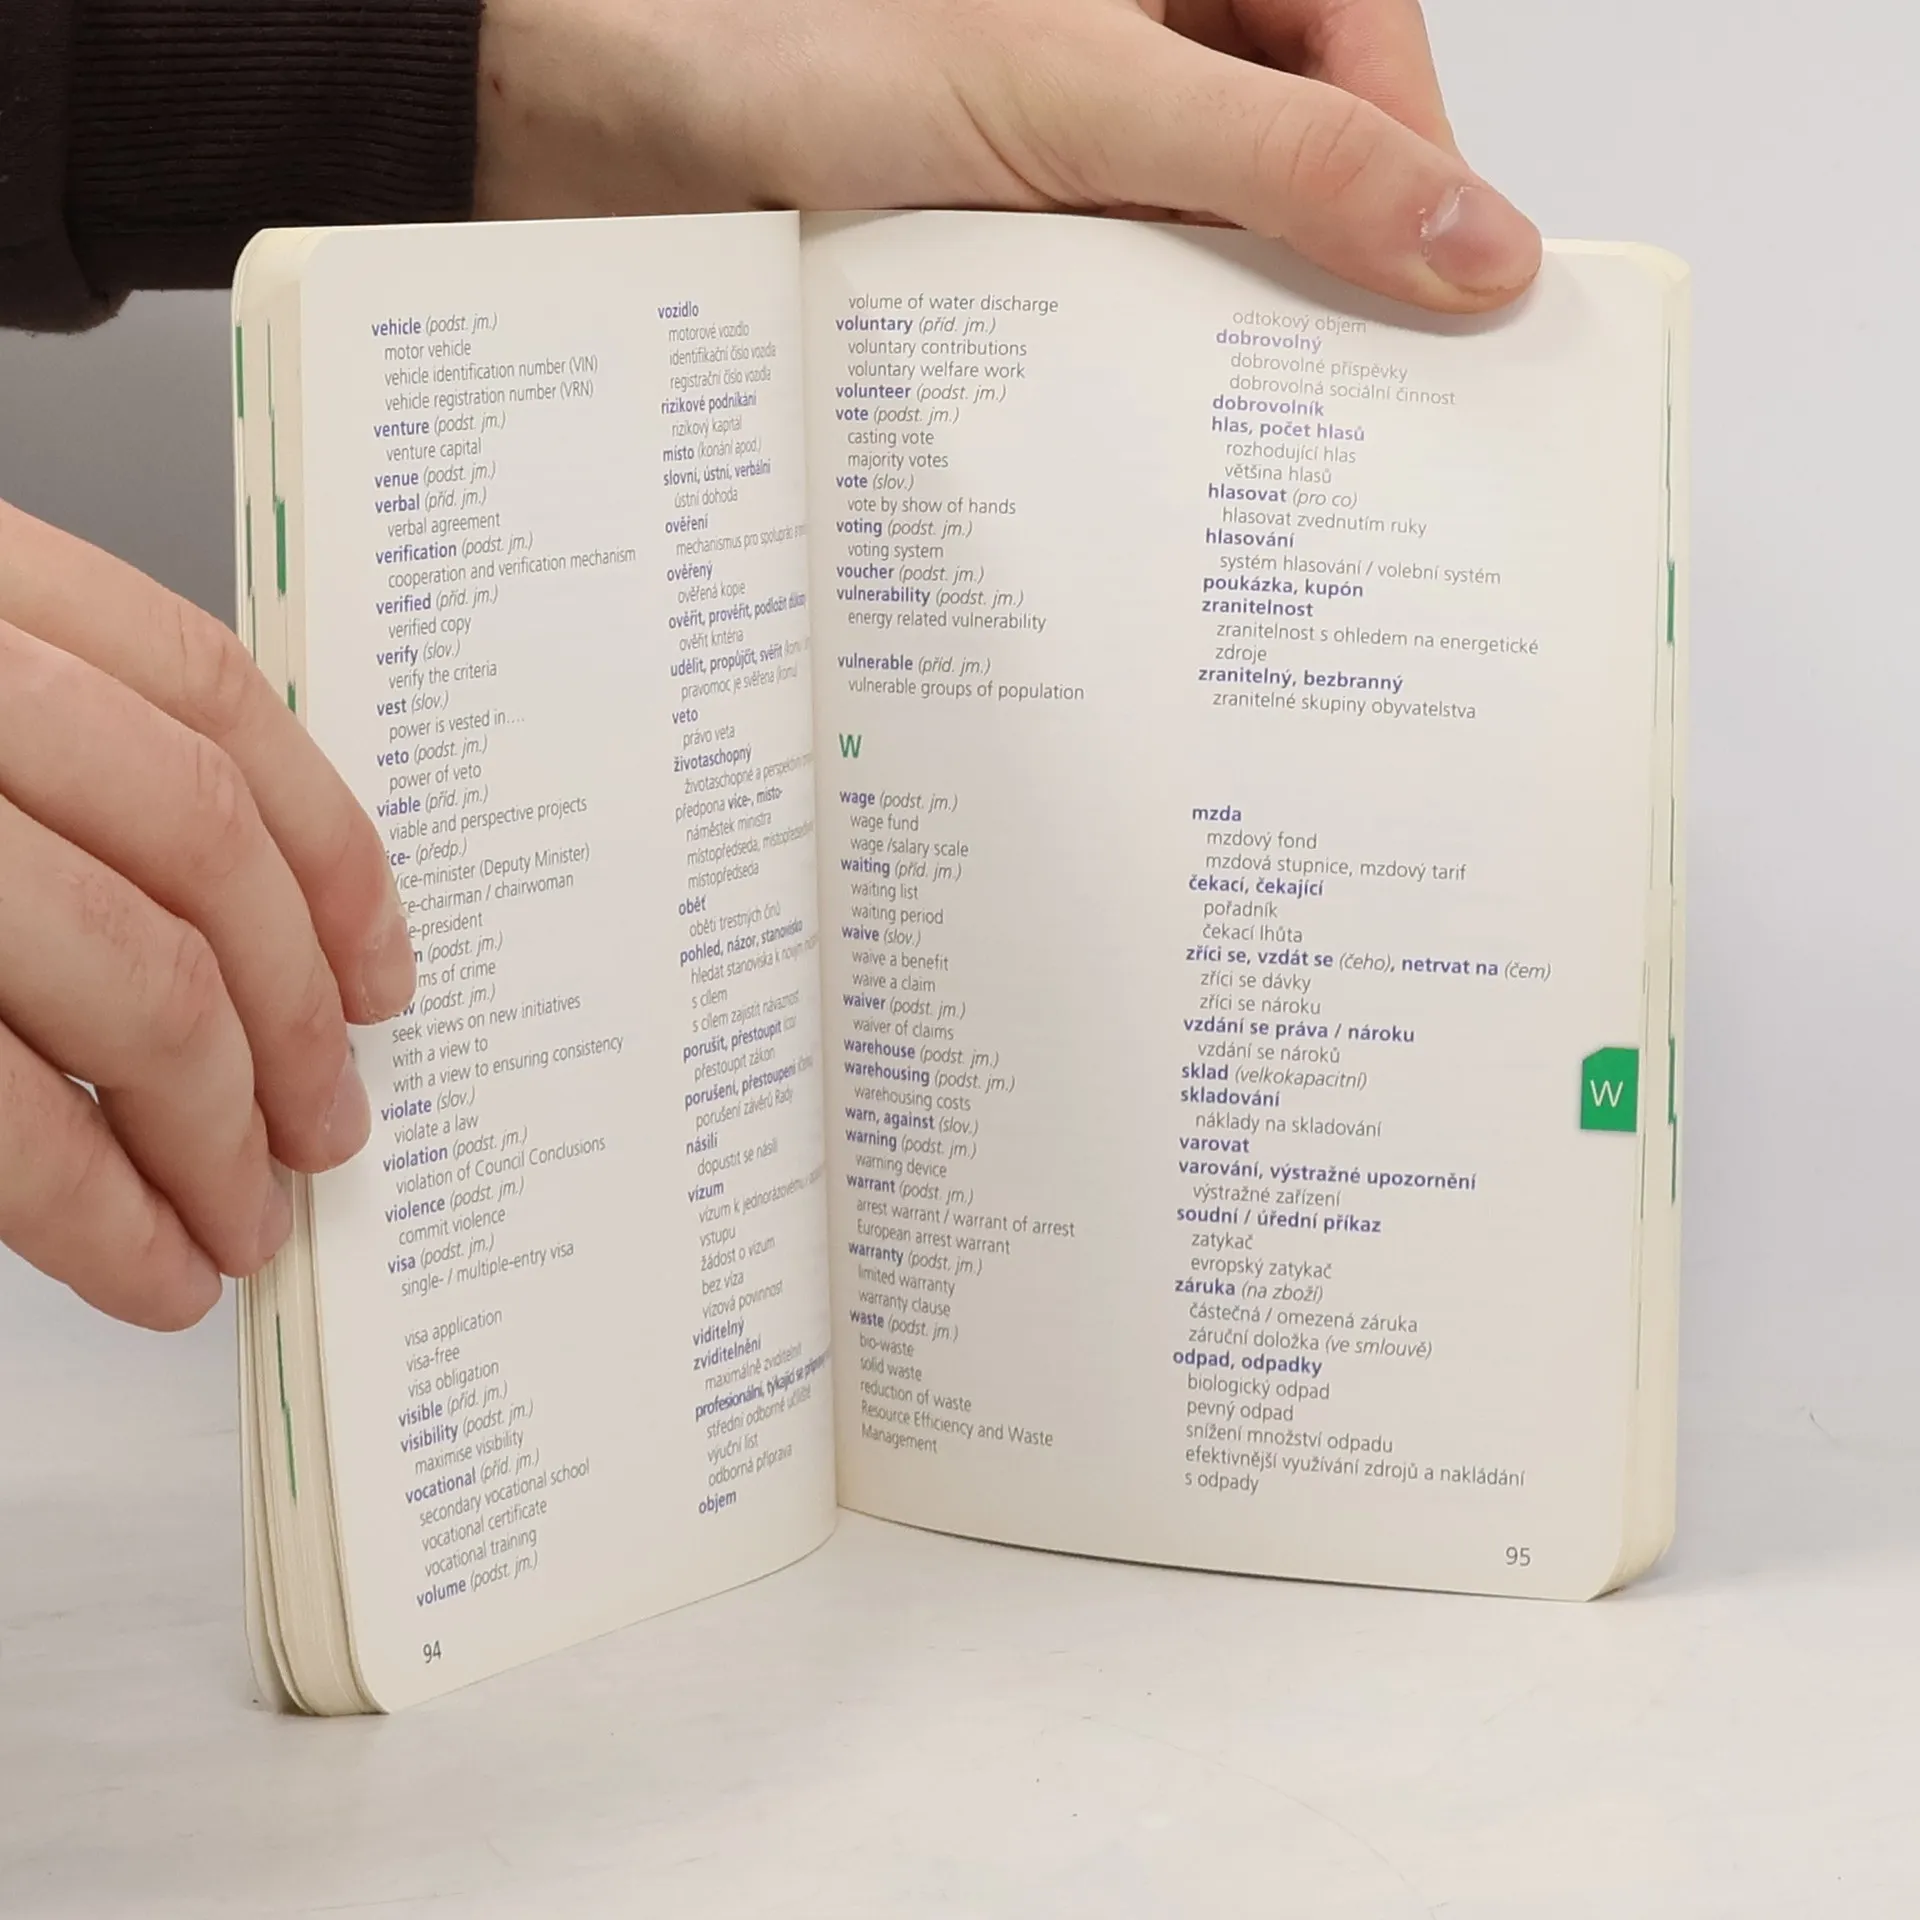 vehicle (podst. jm.)
motor vehicle
vehicle identification number (VIN)
vehicle registration number (VRN)
venture (podst. jm.)
venture capital
venue (podst. jm.)
verbal (příd. jm.)
verbal agreement
verification (podst. jm.)
cooperation and verification mechanism
verified (příd. jm.)
verified copy
verify (slov.)
verify the criteria
vest (slov.)
power is vested in....
veto (podst. jm.)
power of veto
viable (příd. jm.)
viable and perspective projects
ice- (předp.)
ice-minister (Deputy Minister)
ce-chairman / chairwoman
e-president
(podst. jm.)
ms of crime
(podst. jm.)
seek views on new initiatives
with a view to
with a view to ensuring consistency
violate (slov.)
violate a law
violation (podst. jm.)
violation of Council Conclusions
violence (podst. jm.)
commit violence
visa (podst. jm.)
single- / multiple-entry visa
visa application
visa-free
visa obligation
visible (příd. jm.)
visibility (podst. jm.)
maximise visibility
vocational (příd. jm.)
secondary vocational school
vocational certificate
vocational training
volume (podst. jm.)
94
vozidlo
motorové vozidlo
identifikační číslo vozidla
registrační číslo vozidla
rizikové podnikání
rizikový kapitál
místo (konání apod.)
slovní, ústní, verbální
ústní dohoda
ověření
mechanismus pro spolupráci a
ověřený
ověřená kopie
ověřit, prověřit, podložit
ověřit kritéria
udělit, propůjčit, svěřit
pravomoc je svěřena (komu)
veto
právo veta
životaschopný
životaschopné a perspektivní
předpona vice-, místo-
náměstek ministra
místopředseda,
místopředseda
oběť
oběti trestných činů
pohled, názor, stanovisko
hledat stanoviska k novým
s cílem
s cílem zajistit návaznost
porušit, přestoupit (co)
přestoupit zákon
porušení, přestoupení
porušení závěrů Rady
násilí
dopustit se násilí
vízum
vízum k jednorázovému /
vstupu
žádost o vízum
bez víza
vízová povinnost
viditelný
zviditelnění
maximálně zviditelnit
profesionální, týkající se
střední odborné učiliště
výuční list
odborná příprava
objem
volume of water discharge
voluntary (příd. jm.)
voluntary contributions
voluntary welfare work
volunteer (podst. jm.)
vote (podst. jm.)
casting vote
majority votes
vote (slov.)
vote by show of hands
voting (podst. jm.)
voting system
voucher (podst. jm.)
vulnerability (podst. jm.)
energy related vulnerability
vulnerable (příd. jm.)
vulnerable groups of population
W
wage (podst. jm.)
wage fund
wage /salary scale
waiting (příd. jm.)
waiting list
waiting period
waive (slov.)
waive a benefit
waive a claim
waiver (podst. jm.)
waiver of claims
warehouse (podst. jm.)
warehousing (podst. jm.)
warehousing costs
warn, against (slov.)
warning (podst. jm.)
warning device
warrant (podst. jm.)
arrest warrant / warrant of arrest
European arrest warrant
warranty (podst. jm.)
limited warranty
warranty clause
waste (podst. jm.)
bio-waste
solid waste
reduction of waste
Resource Efficiency and Waste
Management
odtokový objem
dobrovolný
dobrovolné příspěvky
dobrovolná sociální činnost
dobrovolník
hlas, počet hlasů
rozhodující hlas
většina hlasů
hlasovat (pro co)
hlasovat zvednutím ruky
hlasování
systém hlasování / volební systém
poukázka, kupón
zranitelnost
zranitelnost s ohledem na energetické
zdroje
zranitelný, bezbranný
zranitelné skupiny obyvatelstva
mzda
mzdový fond
mzdová stupnice, mzdový tarif
čekací, čekající
pořadník
čekací lhůta
zříci se, vzdát se (čeho), netrvat na (čem)
zříci se dávky
zříci se nároku
vzdání se práva / nároku
vzdání se nároků
sklad (velkokapacitní)
skladování
náklady na skladování
varovat
varování, výstražné upozornění
výstražné zařízení
soudní / úřední příkaz
zatykač
evropský zatykač
záruka (na zboží)
částečná / omezená záruka
záruční doložka (ve smlouvě)
odpad, odpadky
biologický odpad
pevný odpad
snížení množství odpadu
efektivnější využívání zdrojů a nakládání
s odpady
W
95